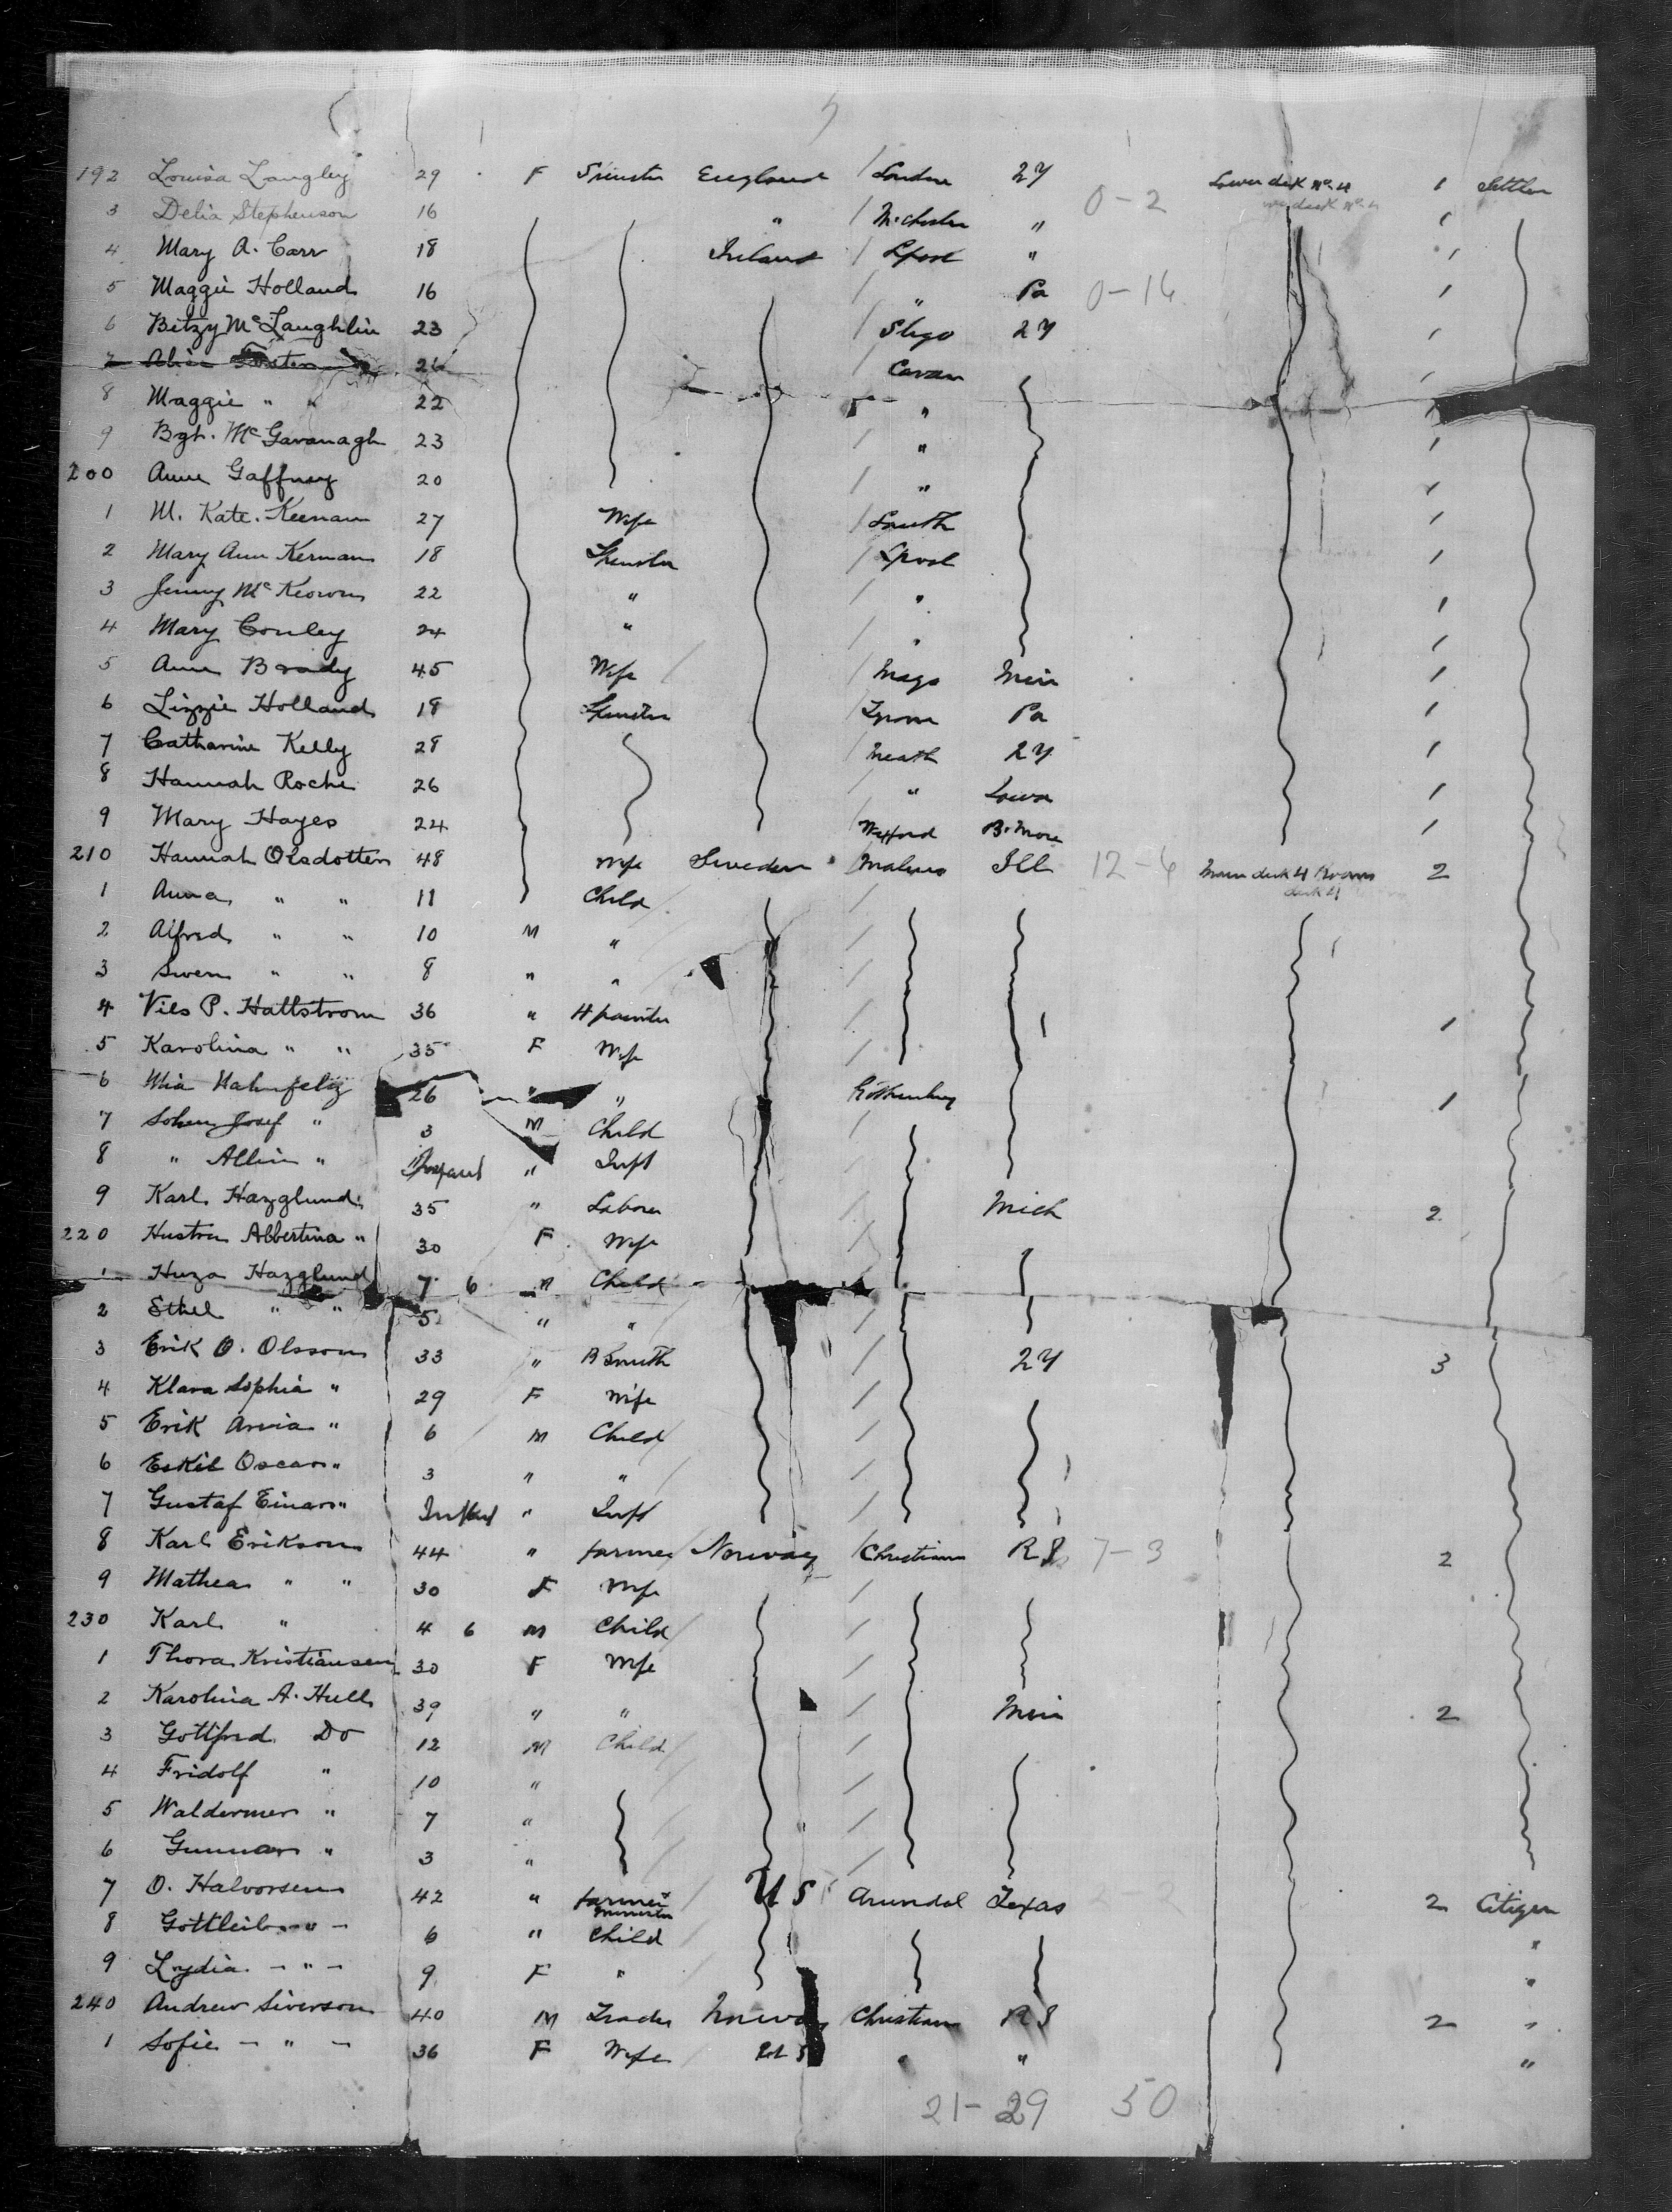 192 Louisa Langley 29 F Spinster England / London NY 0-2 Lower deck No. 4 1 Settler
3 Delia Stephenson 16 " / M'chester " 1
4 Mary A. Carr 18 Ireland / Lpool " 1
5 Maggie Holland 16 / " Pa 0-14 1
6 Betzy McLaughlin 23 / Sligo NY 1
7 Alice 26 / Cavan 1
8 Maggie " " 22 "
9 Bgt. McGavanagh 23 / " 1
200 Anne Gaffney 20 / " 1
1 M. Kate. Keenan 27 Wife / Louth 1
2 Mary Ann Kernan 18 Spinster / Lpool 1
3 Jenny McKeown 22 " / " 1
4 Mary Conley 24 " / " 1
5 Ann Brady 45 Wife / Mayo Min 1
6 Lizzie Holland 18 Spinster / Tyrone Pa 1
7 Catharine Kelly 28 / Meath NY 1
8 Hannah Roche 26 / " Iowa 1
9 Mary Hayes 24 / Wexford B'More 1
210 Hannah Olsdotter 48 Wife Sweden / Malmo Ill 12-6 Main deck 4 2
1 Anna " " 11 Child /
2 Alfred " " 10 M " /
3 Swen " " 8 " " /
4 Nils P. Hallstrom 36 " H painter / 1
5 Karolina " " 35 F Wife /
6 26 " " Gothenburg 1
7 Johan Josef " 3 M Child /
8 " Albin " Infant " Inft /
9 Karl Hagglund 35 " Laborer / Mich 2
220 Hustru Albertina " 30 F Wife /
1 Hugo Hagglund 7 6 M Child
2 Ethel " " 5 " " /
3 Erik O. Olsson 33 " B Smith / NY 3
4 Klara Sophia " 29 F Wife /
5 Erik Arvia " 6 M Child /
6 Eskil Oscar " 3 " " /
7 Gustaf Einar " Infant " Inft /
8 Karl Erikson 44 " farmer Norway / Christiana 7-3 2
9 Mathea " " 30 F Wife /
230 Karl " 4 6 M Child /
1 Thora Kristiansen 30 F Wife /
2 Karolina A. Hull 39 " " / Min 2
3 Gottfred Do 12 M Child /
4 Fridolf " 10 " /
5 Waldermer " 7 " /
6 Gunnar " 3 " /
7 O. Halvorsen 42 " farmer minister U S Arundal Texas 2 Citizen
8 Gottleib - " - 6 " Child "
9 Lydia - " - 9 F " "
240 Andrew Siverson 40 M Trader Norway Christiana 2 "
1 Sofie - " - 36 F Wife " " "
21-29 50